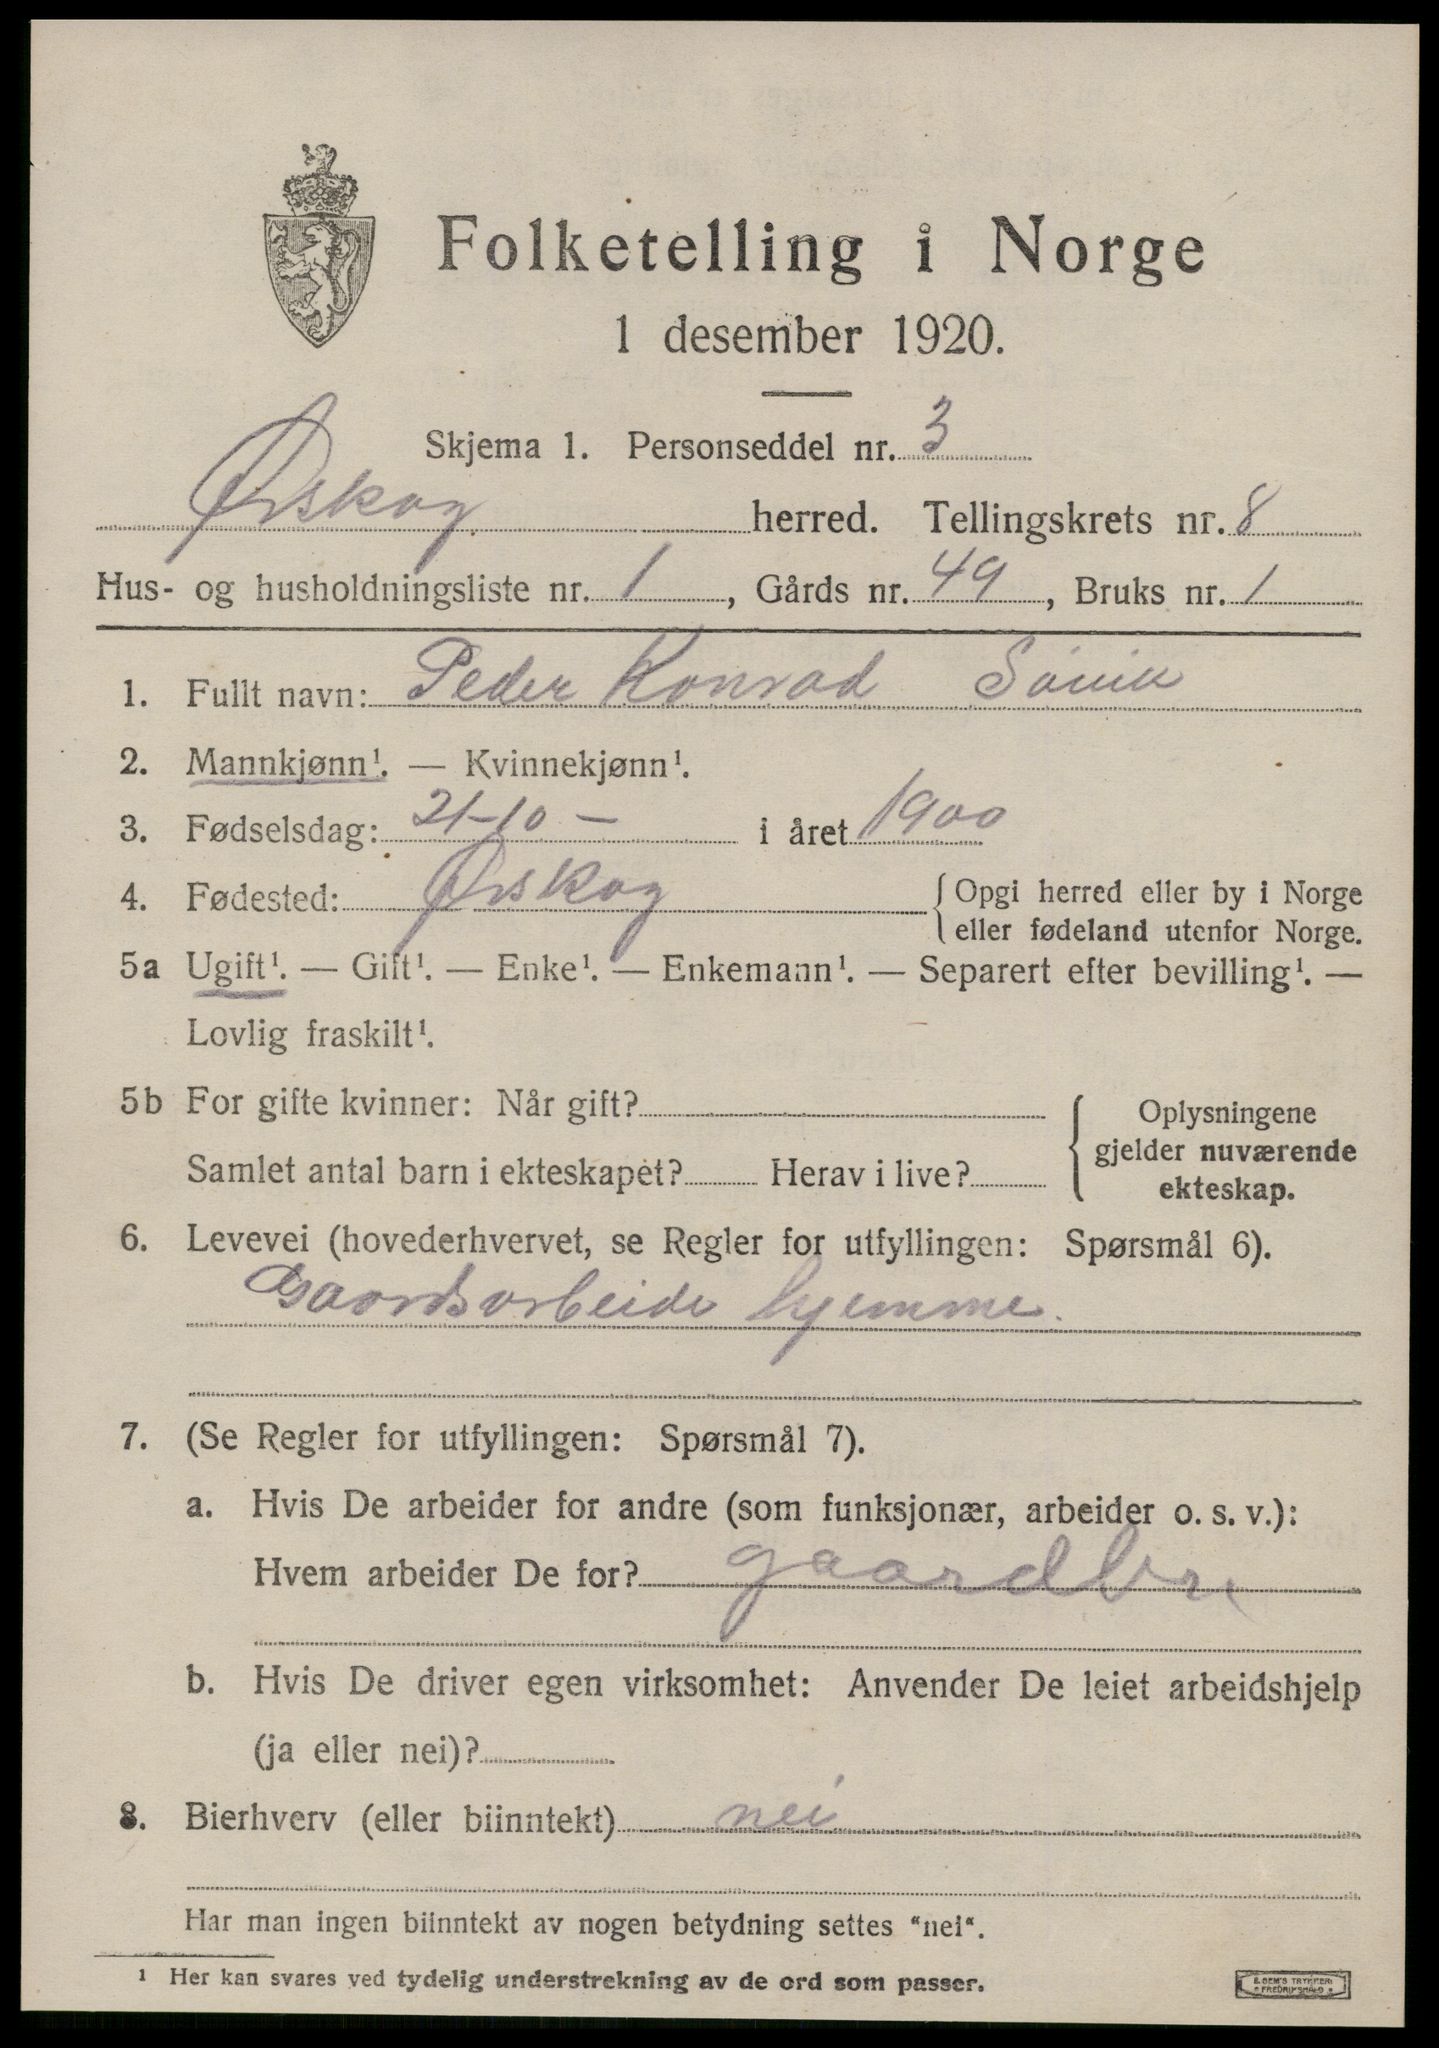 Folketelling i Norge
1 desember 1920.
Skjema 1. Personseddel nr. 3
Ørskog herred. Tellingskrets nr. 8
Hus- og husholdningsliste nr. 1, Gårds nr. 49, Bruks nr. 1
1. Fullt navn: Peder Konrad
2. Mannkjønn¹. — Kvinnekjønn¹.
3. Fødselsdag: 21-10 — i året 1900
4. Fødested: Ørskog {Opgi herred eller by i Norge
eller fødeland utenfor Norge.
5a Ugift¹. — Gift¹. — Enke¹. — Enkemann¹. — Separert efter bevilling¹. —
Lovlig fraskilt¹.
5b For gifte kvinner: Når gift?
Samlet antal barn i ekteskapet? Herav i live?
Oplysningene
gjelder nuværende
ekteskap.
6. Levevei (hovederhvervet, se Regler for utfyllingen: Spørsmål 6).
Gaardsarbeide hjemme.
7. (Se Regler for utfyllingen: Spørsmål 7).
a. Hvis De arbeider for andre (som funksjonær, arbeider o. s. v.):
Hvem arbeider De for? gaardbr.
b. Hvis De driver egen virksomhet: Anvender De leiet arbeidshjelp
(ja eller nei)?
8. Bierhverv (eller biinntekt) nei
Har man ingen biinntekt av nogen betydning settes "nei".
¹ Her kan svares ved tydelig understrekning av de ord som passer.
E. SEM'S TRYKKERI
FREDRIKSHALD